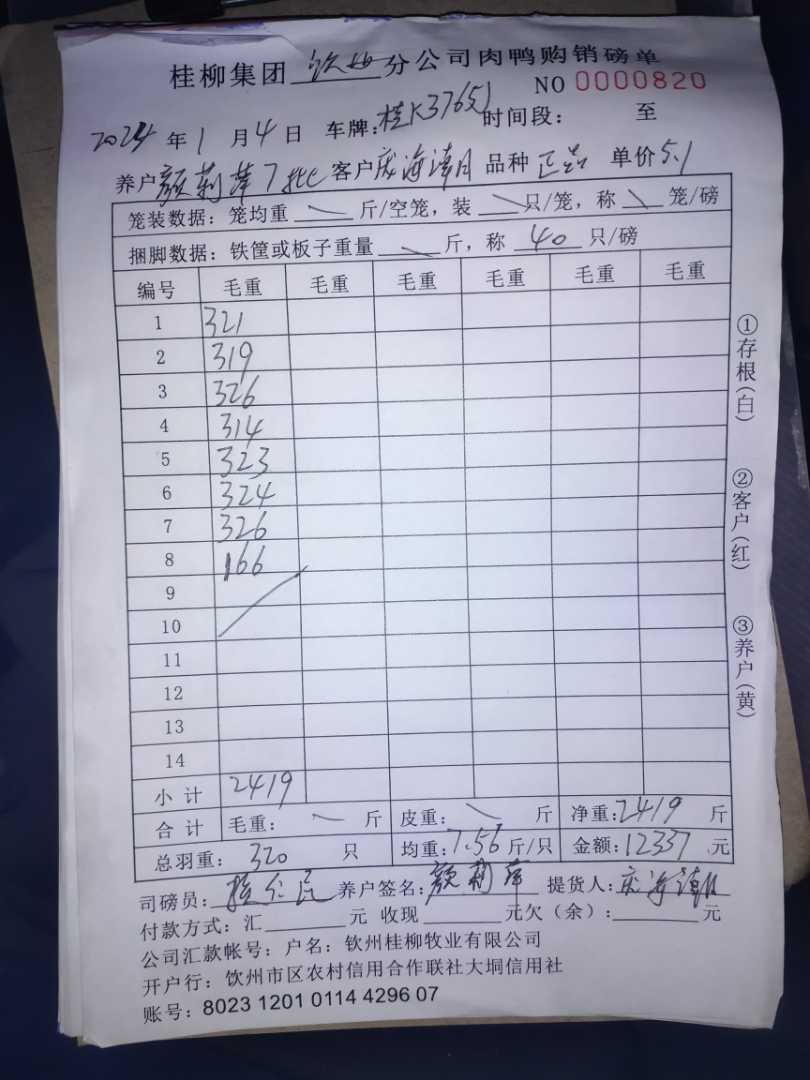 桂柳集团 钦州 分公司肉鸭购销磅单
NO 0000820
2024 年 1 月 4 日 车牌:桂K37651 时间段: 至
养户 颜莉萍7批 客户 海清 品种 正品 单价5.1
笼装数据:笼均重 斤/空笼,装 只/笼,称 笼/磅
捆脚数据:铁筐或板子重量 斤,称 40 只/磅
编号 毛重 毛重 毛重 毛重 毛重 毛重
1 321
2 319
3 326
4 314
5 323
6 324
7 326
8 166
9
10
11
12
13
14
小计 2419
合计 毛重: 斤 皮重: 斤 净重:2419 斤
总羽重: 320 只 均重:7.56 斤/只 金额:12337 元
司磅员: 养户签名:颜莉萍 提货人: 海清
付款方式:汇 元 收现 元欠(余): 元
公司汇款帐号:户名:钦州桂柳牧业有限公司
开户行:钦州市区农村信用合作联社大垌信用社
账号:8023 1201 0114 4296 07
①存根(白)
②客户(红)
③养户(黄)